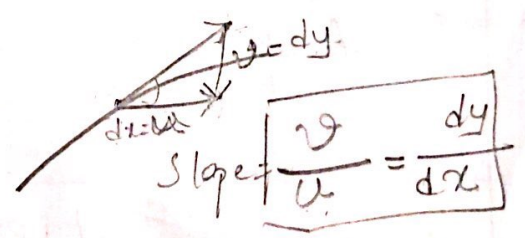 v = dy
dx = u
Slope = v/u = dy/dx